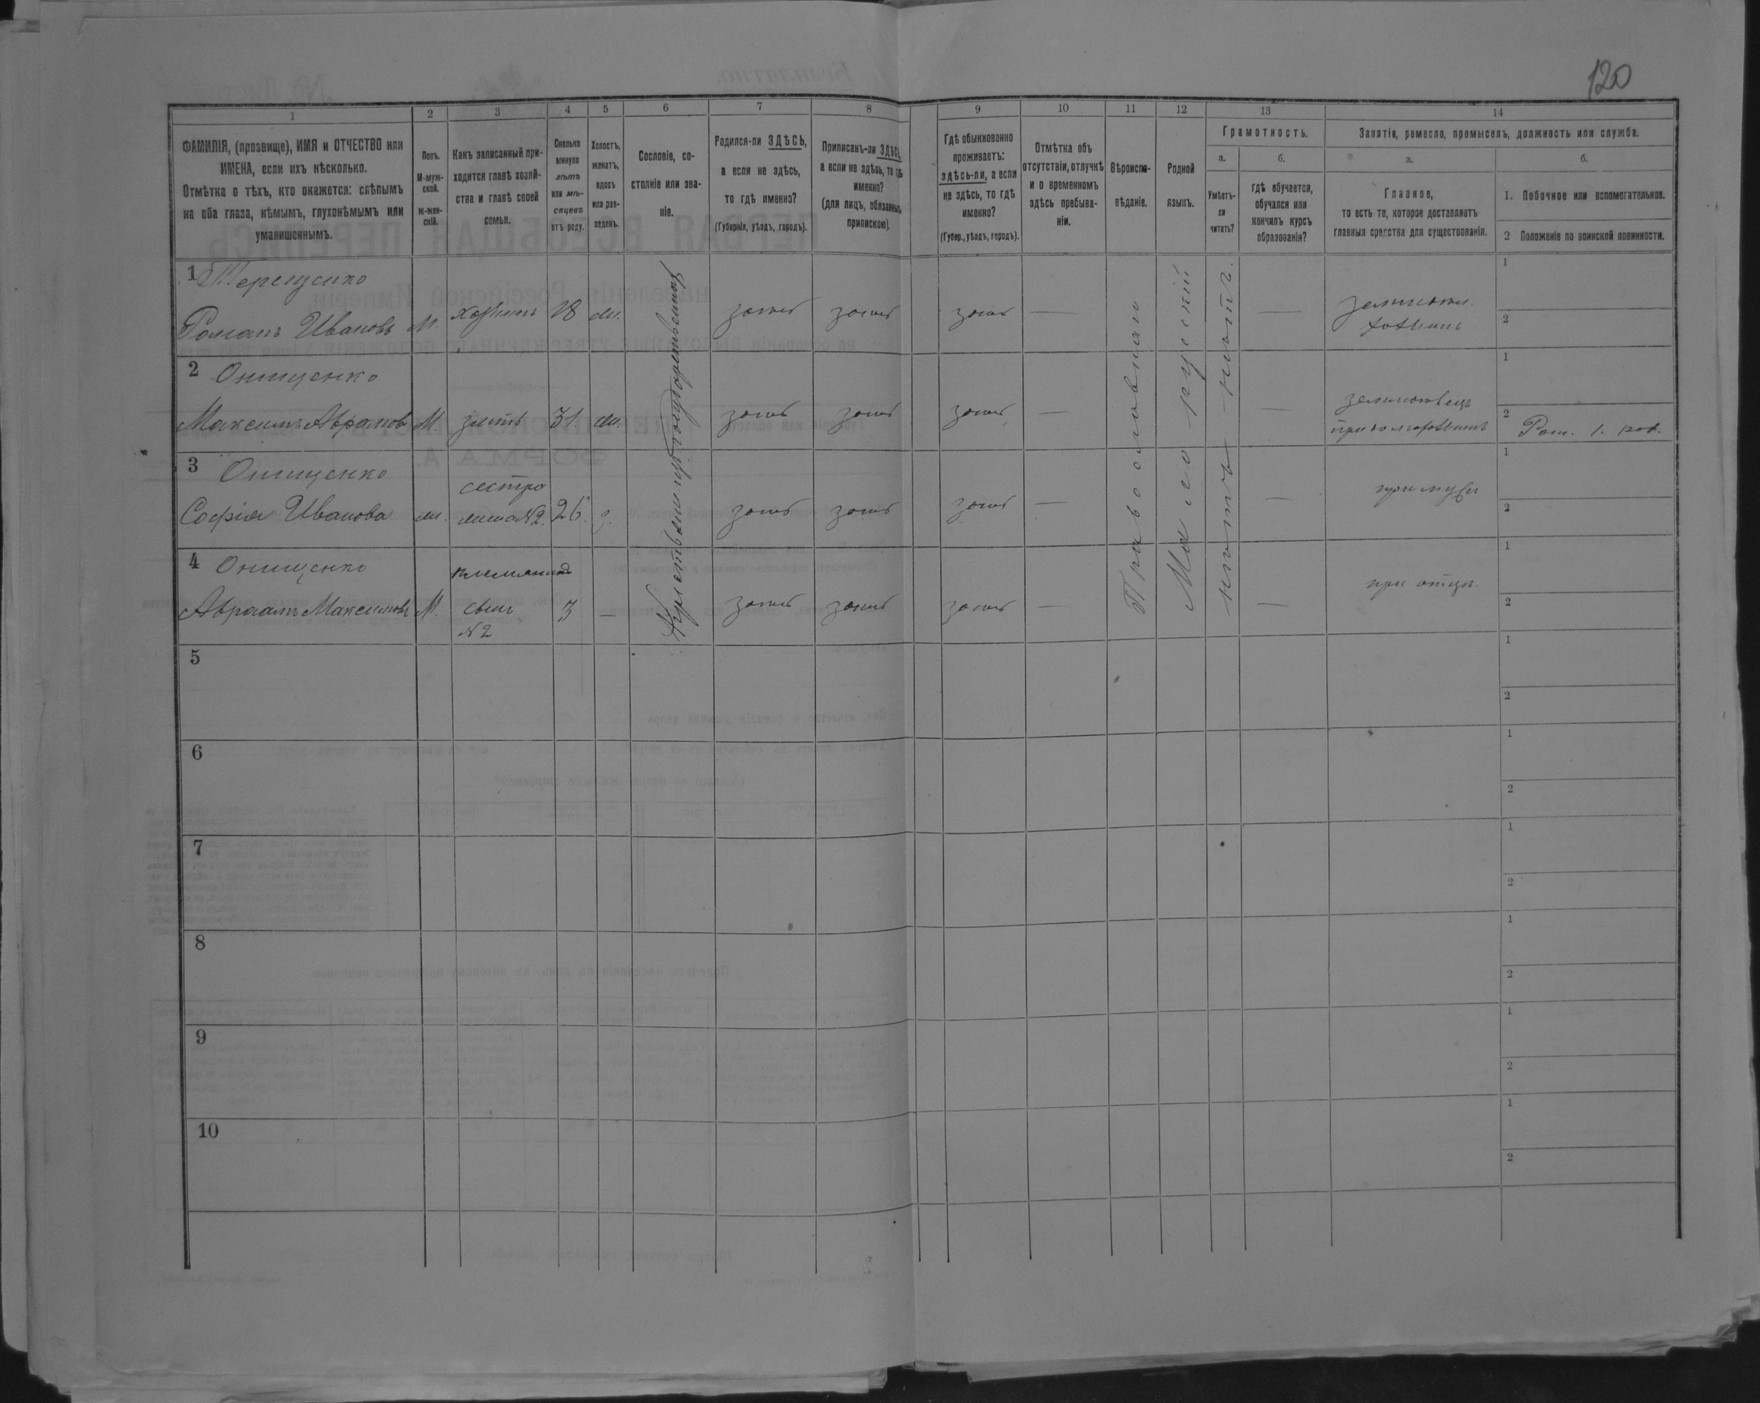 120
1
2
3
4
5
6
7
8
9
10
11
12
13
14
ФАМИЛІЯ, (прозвище), ИМЯ и ОТЧЕСТВО или
ИМЕНА, если ихъ нѣсколько.
Отмѣтка о тѣхъ, кто окажется: слѣпымъ
на оба глаза, нѣмымъ, глухонѣмымъ или
умалишеннымъ.
Полъ.
М-муж-
ской.
ж-жен-
скій.
Какъ записанный при-
ходится главѣ хозяй-
ства и главѣ своей
семьи.
Сколько
минуло
лѣтъ
или мѣ-
сяцевъ
отъ роду.
Холостъ,
женатъ,
вдовъ
или раз-
веденъ.
Сословіе, со-
стояніе или зва-
ніе.
Родился-ли ЗДѢСЬ,
а если не здѣсь,
то гдѣ именно?
(Губернія, уѣздъ, городъ).
Приписанъ-ли ЗДѢСЬ,
а если не здѣсь, то гдѣ
именно?
(для лицъ, обязанныхъ
припискою).
Гдѣ обыкновенно
проживаетъ:
здѣсь-ли, а если
не здѣсь, то гдѣ
именно?
(Губер., уѣздъ, городъ).
Отмѣтка объ
отсутствіи, отлучкѣ
и о временномъ
здѣсь пребыва-
ніи.
Вѣроиспо-
вѣданіе.
Родной
языкъ.
Грамотность.
а.
Умѣетъ-
ли
читать?
б.
гдѣ обучается,
обучался или
кончилъ курсъ
образованія?
Занятіе, ремесло, промыселъ, должность или служба.
а.
Главное,
то есть то, которое доставляетъ
главныя средства для существованія.
б.
1. Побочное или вспомогательное.
2 Положеніе по воинской повинности.
1 Терещенко
Романъ Ивановъ М. 18 здесь здесь здесь —
2 Онищенко
Максимъ Аврамовъ М. зять 31 здесь здесь здесь — —
Рат. 1. раз.
3 Онищенко
сестра
Софія Иванова 26 здесь здесь здесь — —
при мужѣ
4 Онищенко
племянникъ
Авраамъ Максимовъ М. сынъ 3 — здесь здесь здесь — —
№ 2
при отцѣ
Православная
Малорусскій
5
6
7
8
9
10